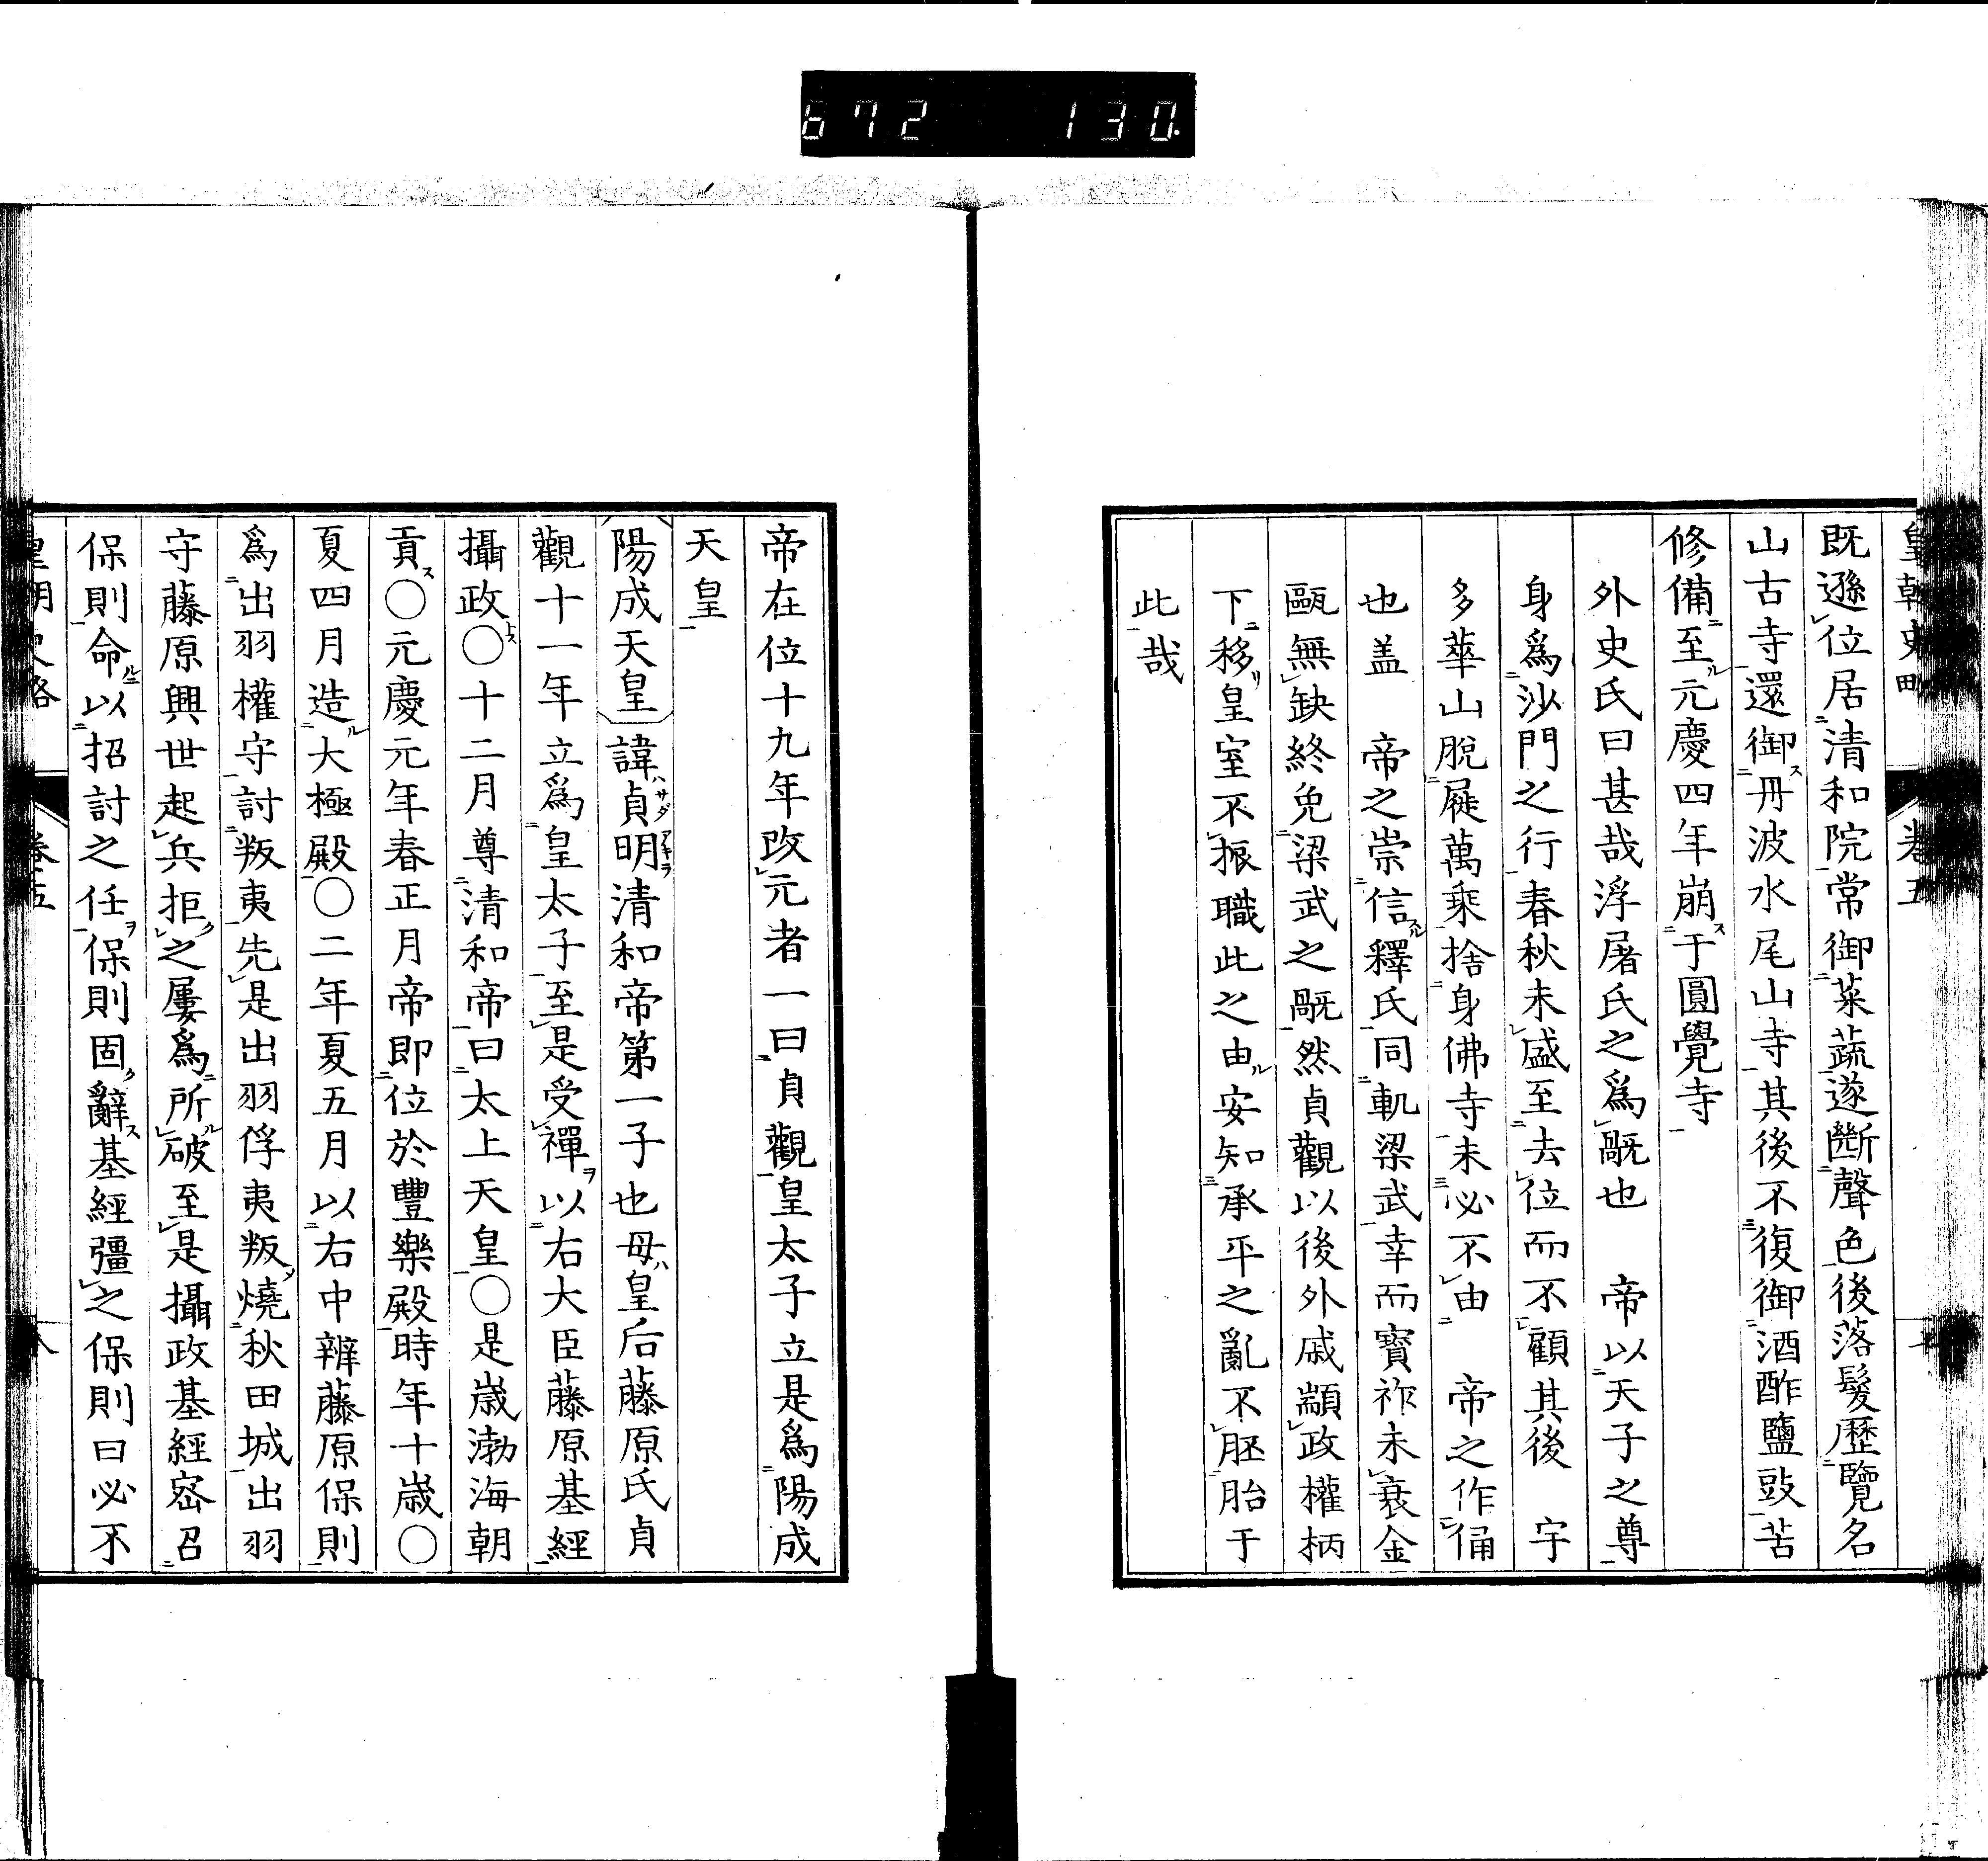 672 130
皇朝史略 卷五
既遜位居清和院常御菜蔬遂斷聲色後落髮歷覽名
山古寺還御丹波水尾山寺其後不復御酒酢鹽豉苦
修備至元慶四年崩于圓覺寺
外史氏曰甚哉浮屠氏之爲厩也 帝以天子之尊
身爲沙門之行春秋未盛至去位而不顧其後 宇
多華山脫屣萬乘捨身佛寺未必不由 帝之作俑
也盖 帝之崇信釋氏同軌梁武幸而寶祚未衰金
甌無缺終免梁武之厩然貞觀以後外戚顓政權柄
下移皇室不振職此之由安知承平之亂不胚胎于
此哉
帝在位十九年改元者一曰貞觀皇太子立是爲陽成
天皇
陽成天皇諱貞明清和帝第一子也母皇后藤原氏貞
觀十一年立爲皇太子至是受禪以右大臣藤原基經
攝政〇十二月尊清和帝曰太上天皇〇是歲渤海朝
貢〇元慶元年春正月帝即位於豐樂殿時年十歲〇
夏四月造大極殿〇二年夏五月以右中辨藤原保則
爲出羽權守討叛夷先是出羽俘夷叛燒秋田城出羽
守藤原興世起兵拒之屢爲所破至是攝政基經密召
保則命以招討之任保則固辭基經彊之保則曰必不
皇朝史略 卷五 八